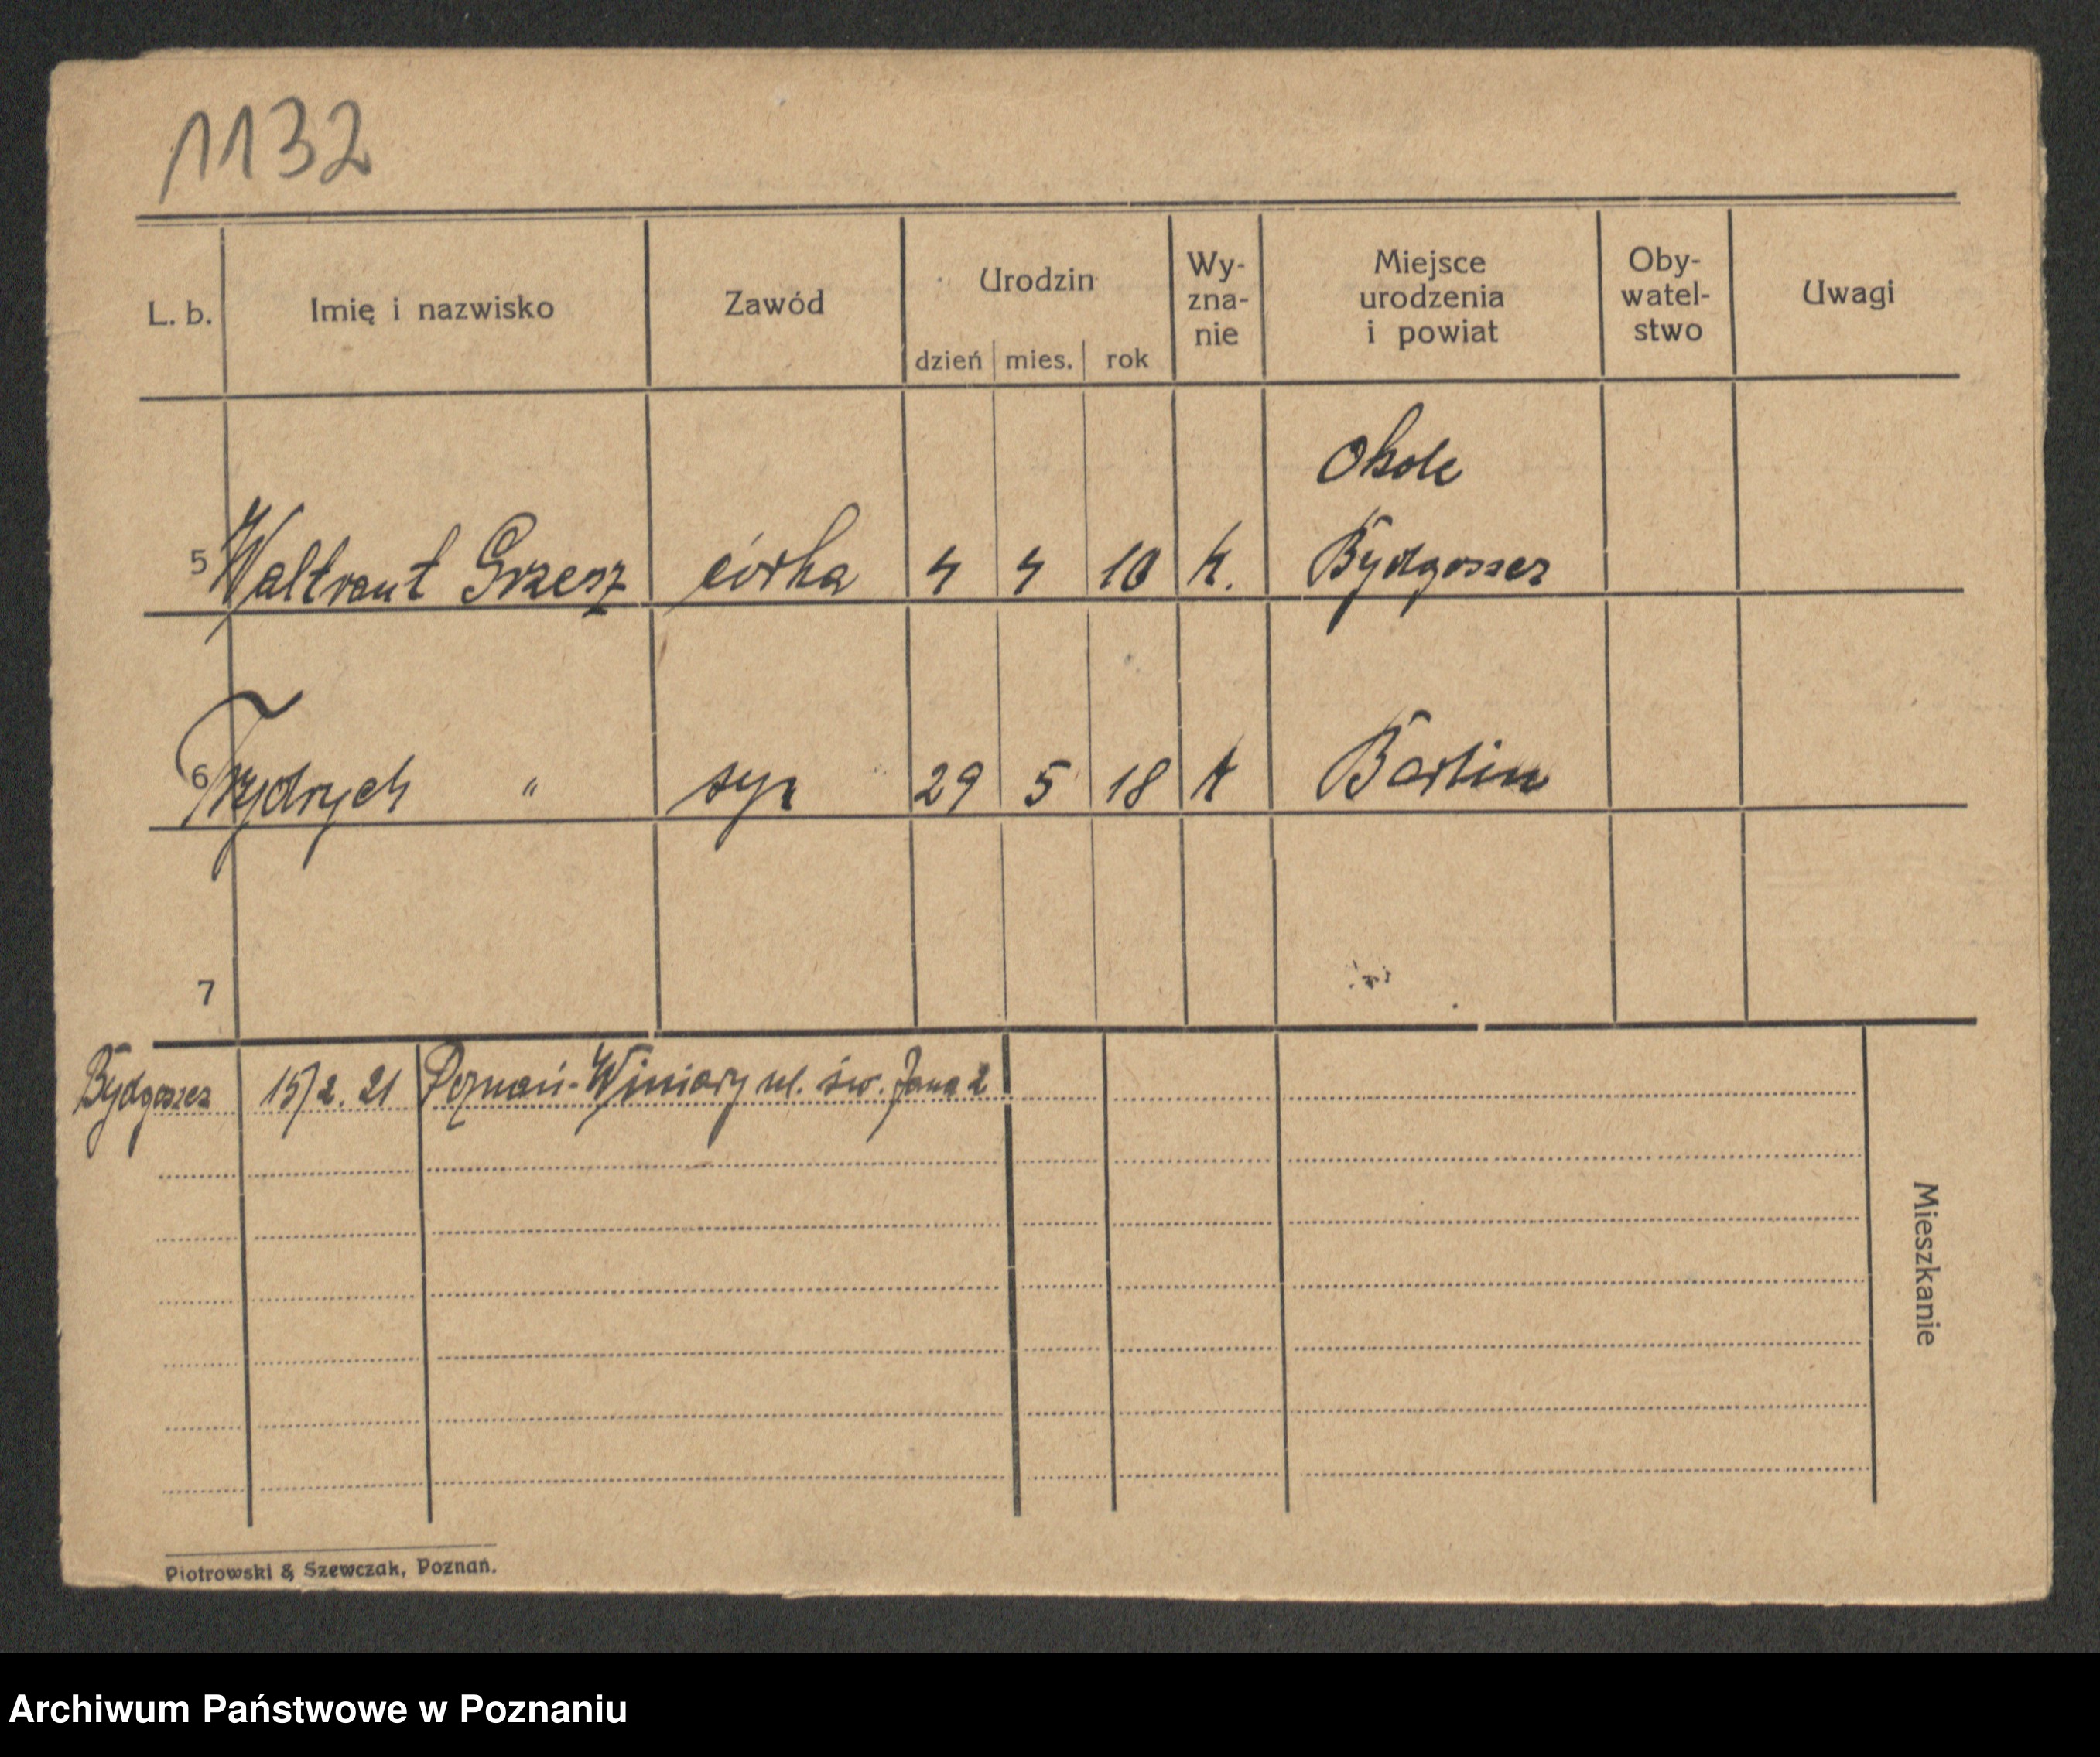 1132
L. b. Imię i nazwisko Zawód Urodzin dzień mies. rok Wy-zna-nie Miejsce urodzenia i powiat Oby-watel-stwo Uwagi
Okole
5 Waltraut Grzesz córka 4 4 10 k. Bydgoszcz
6 Frydrych " syn 29 5 18 k Berlin
7
Bydgoszcz 15/2. 21 Poznań-Winiary ul. św. Jana 2
Mieszkanie
Piotrowski & Szewczak, Poznań.
Archiwum Państwowe w Poznaniu